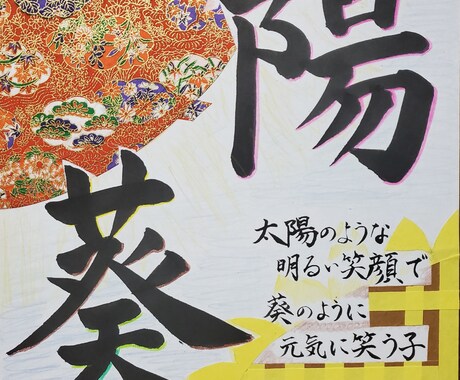 陽
葵
太陽のような
明るい笑顔で
葵のように
元気に笑う子